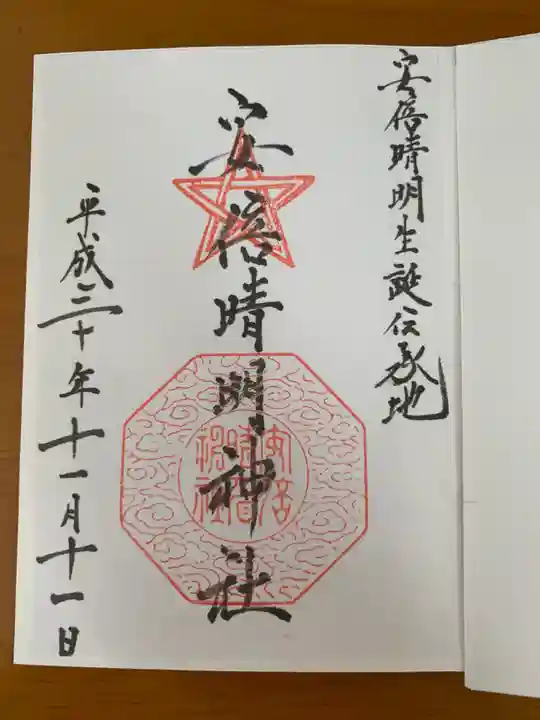 安倍晴明生誕伝承地
安倍晴明神社
安倍
晴明
神社
平成三十年十一月十一日